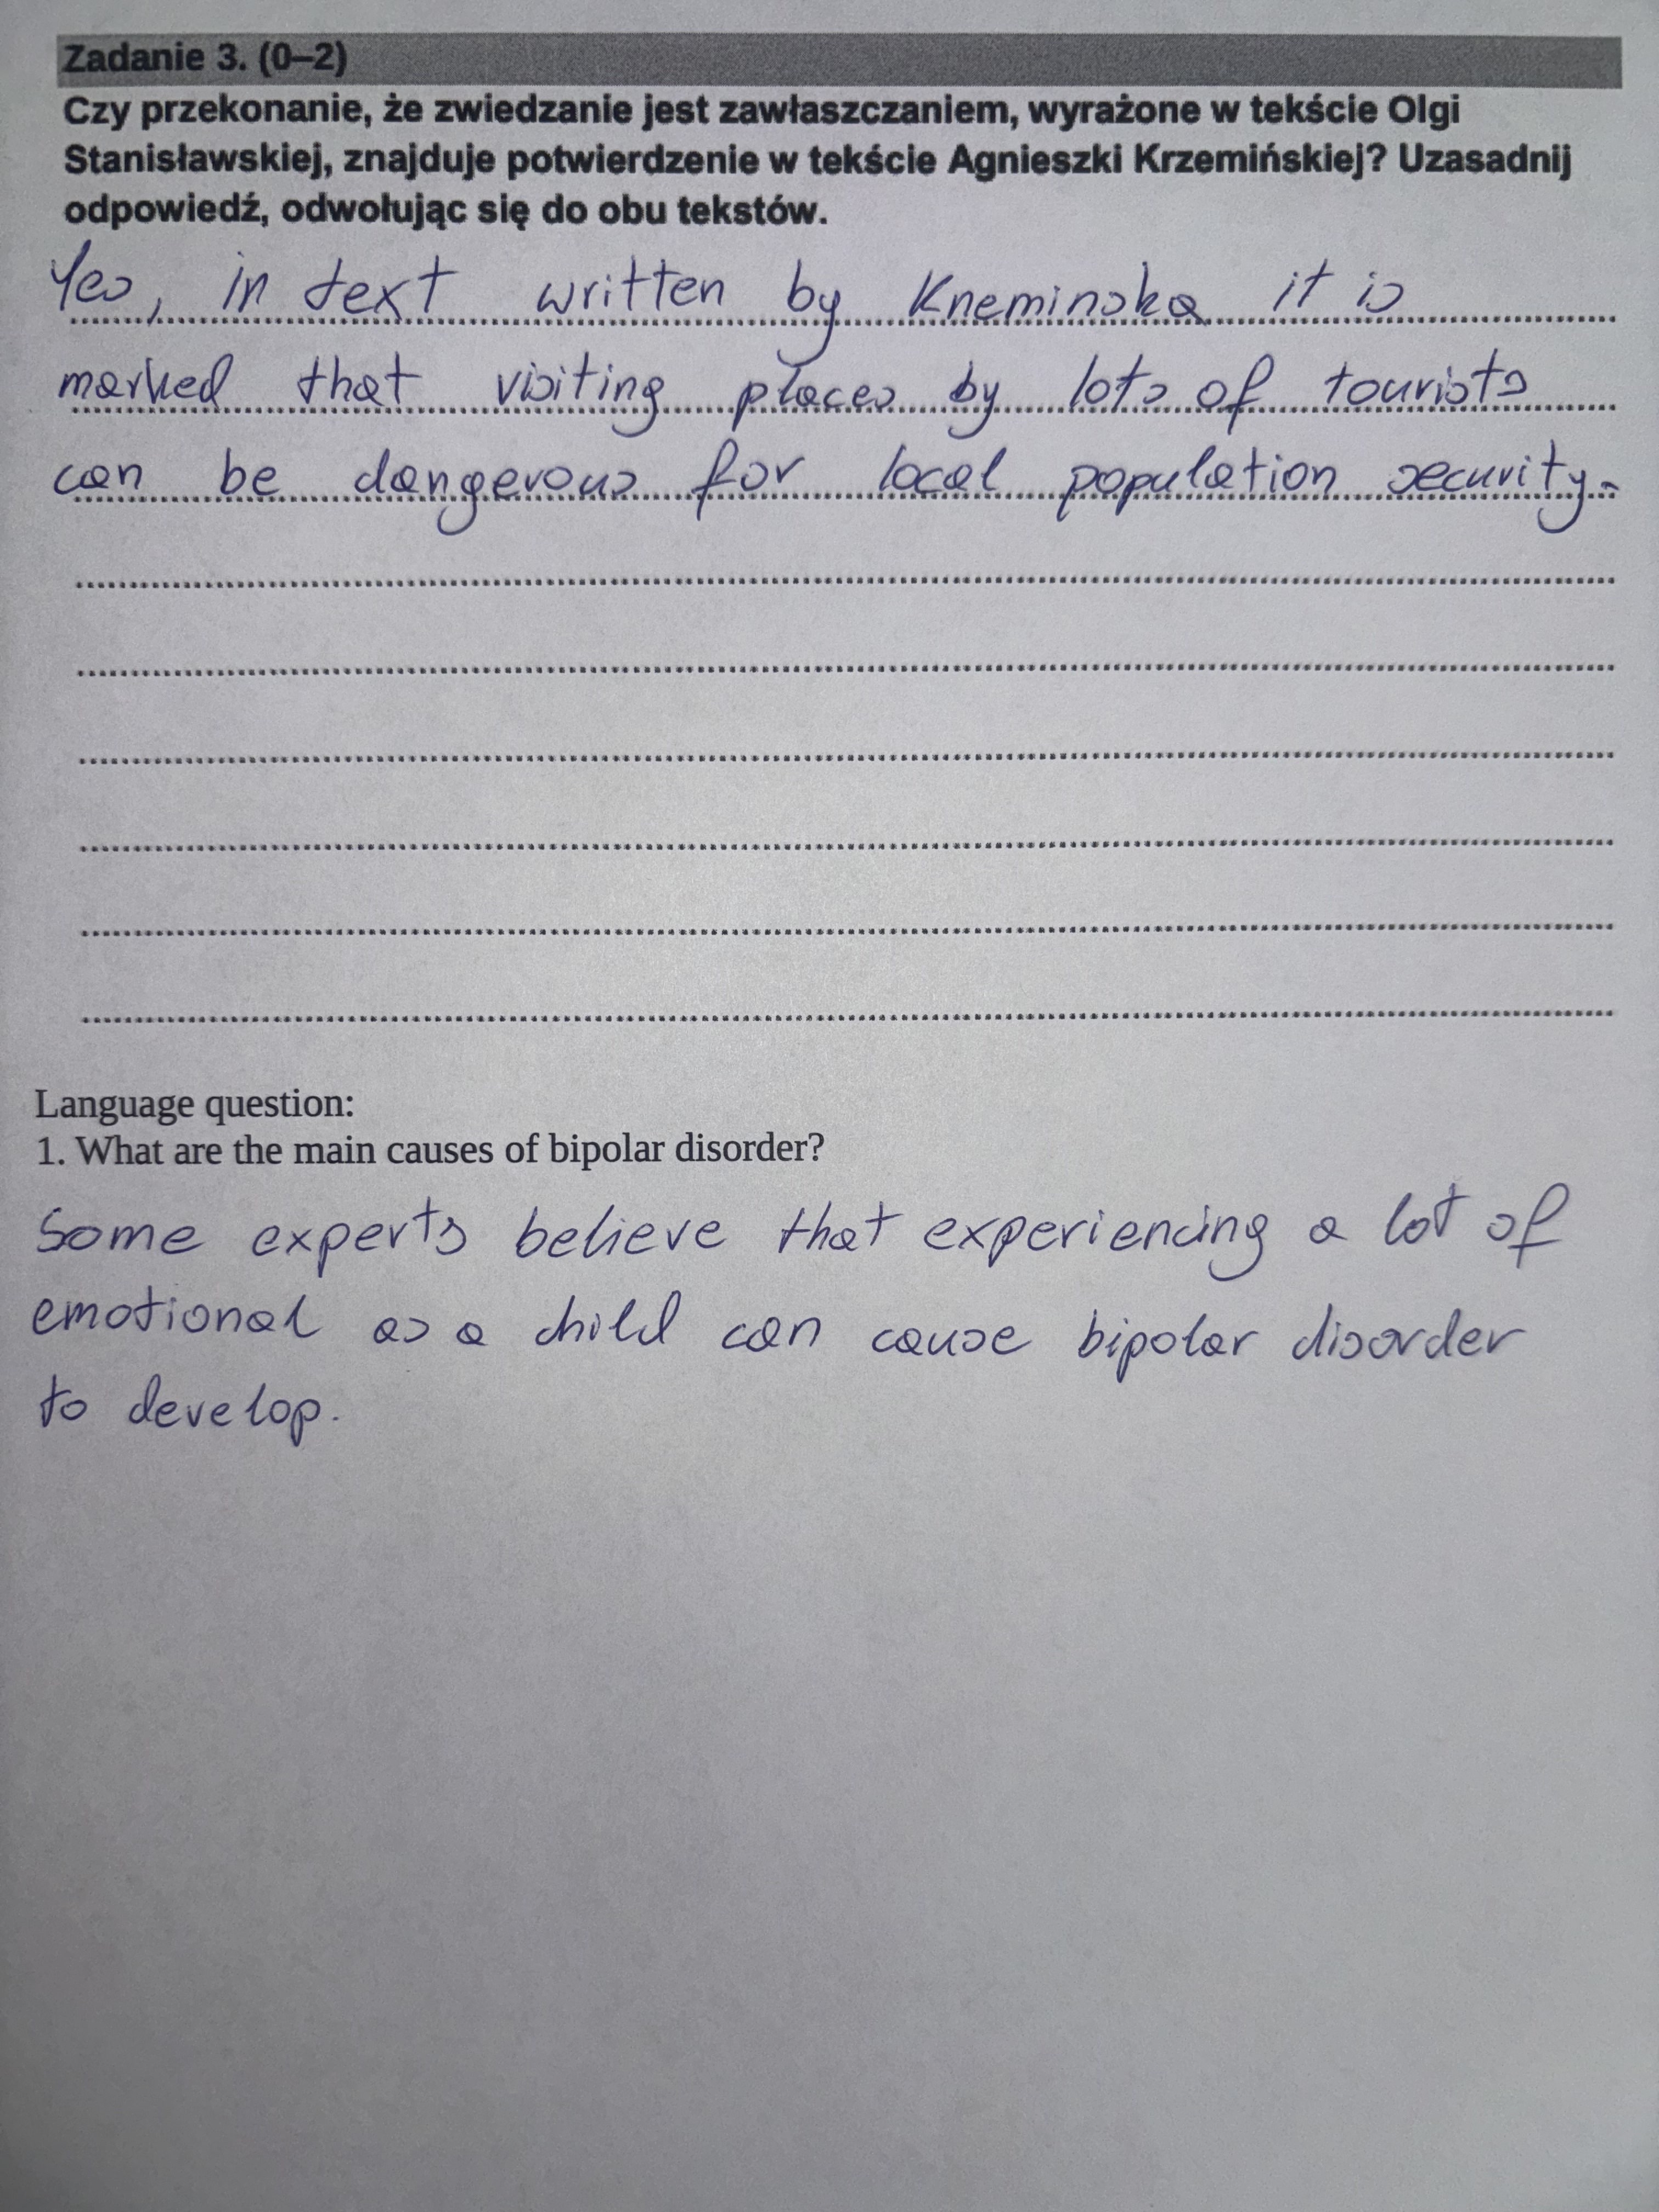 Zadanie 3. (0–2)
Czy przekonanie, że zwiedzanie jest zawłaszczaniem, wyrażone w tekście Olgi
Stanisławskiej, znajduje potwierdzenie w tekście Agnieszki Krzemińskiej? Uzasadnij
odpowiedź, odwołując się do obu tekstów.
Yes, in text written by Kneminska it is
marked that visiting places by lots of tourists
can be dangerous for local population security.
Language question:
1. What are the main causes of bipolar disorder?
Some experts believe that experiencing a lot of
emotional as a child can cause bipolar disorder
to develop.